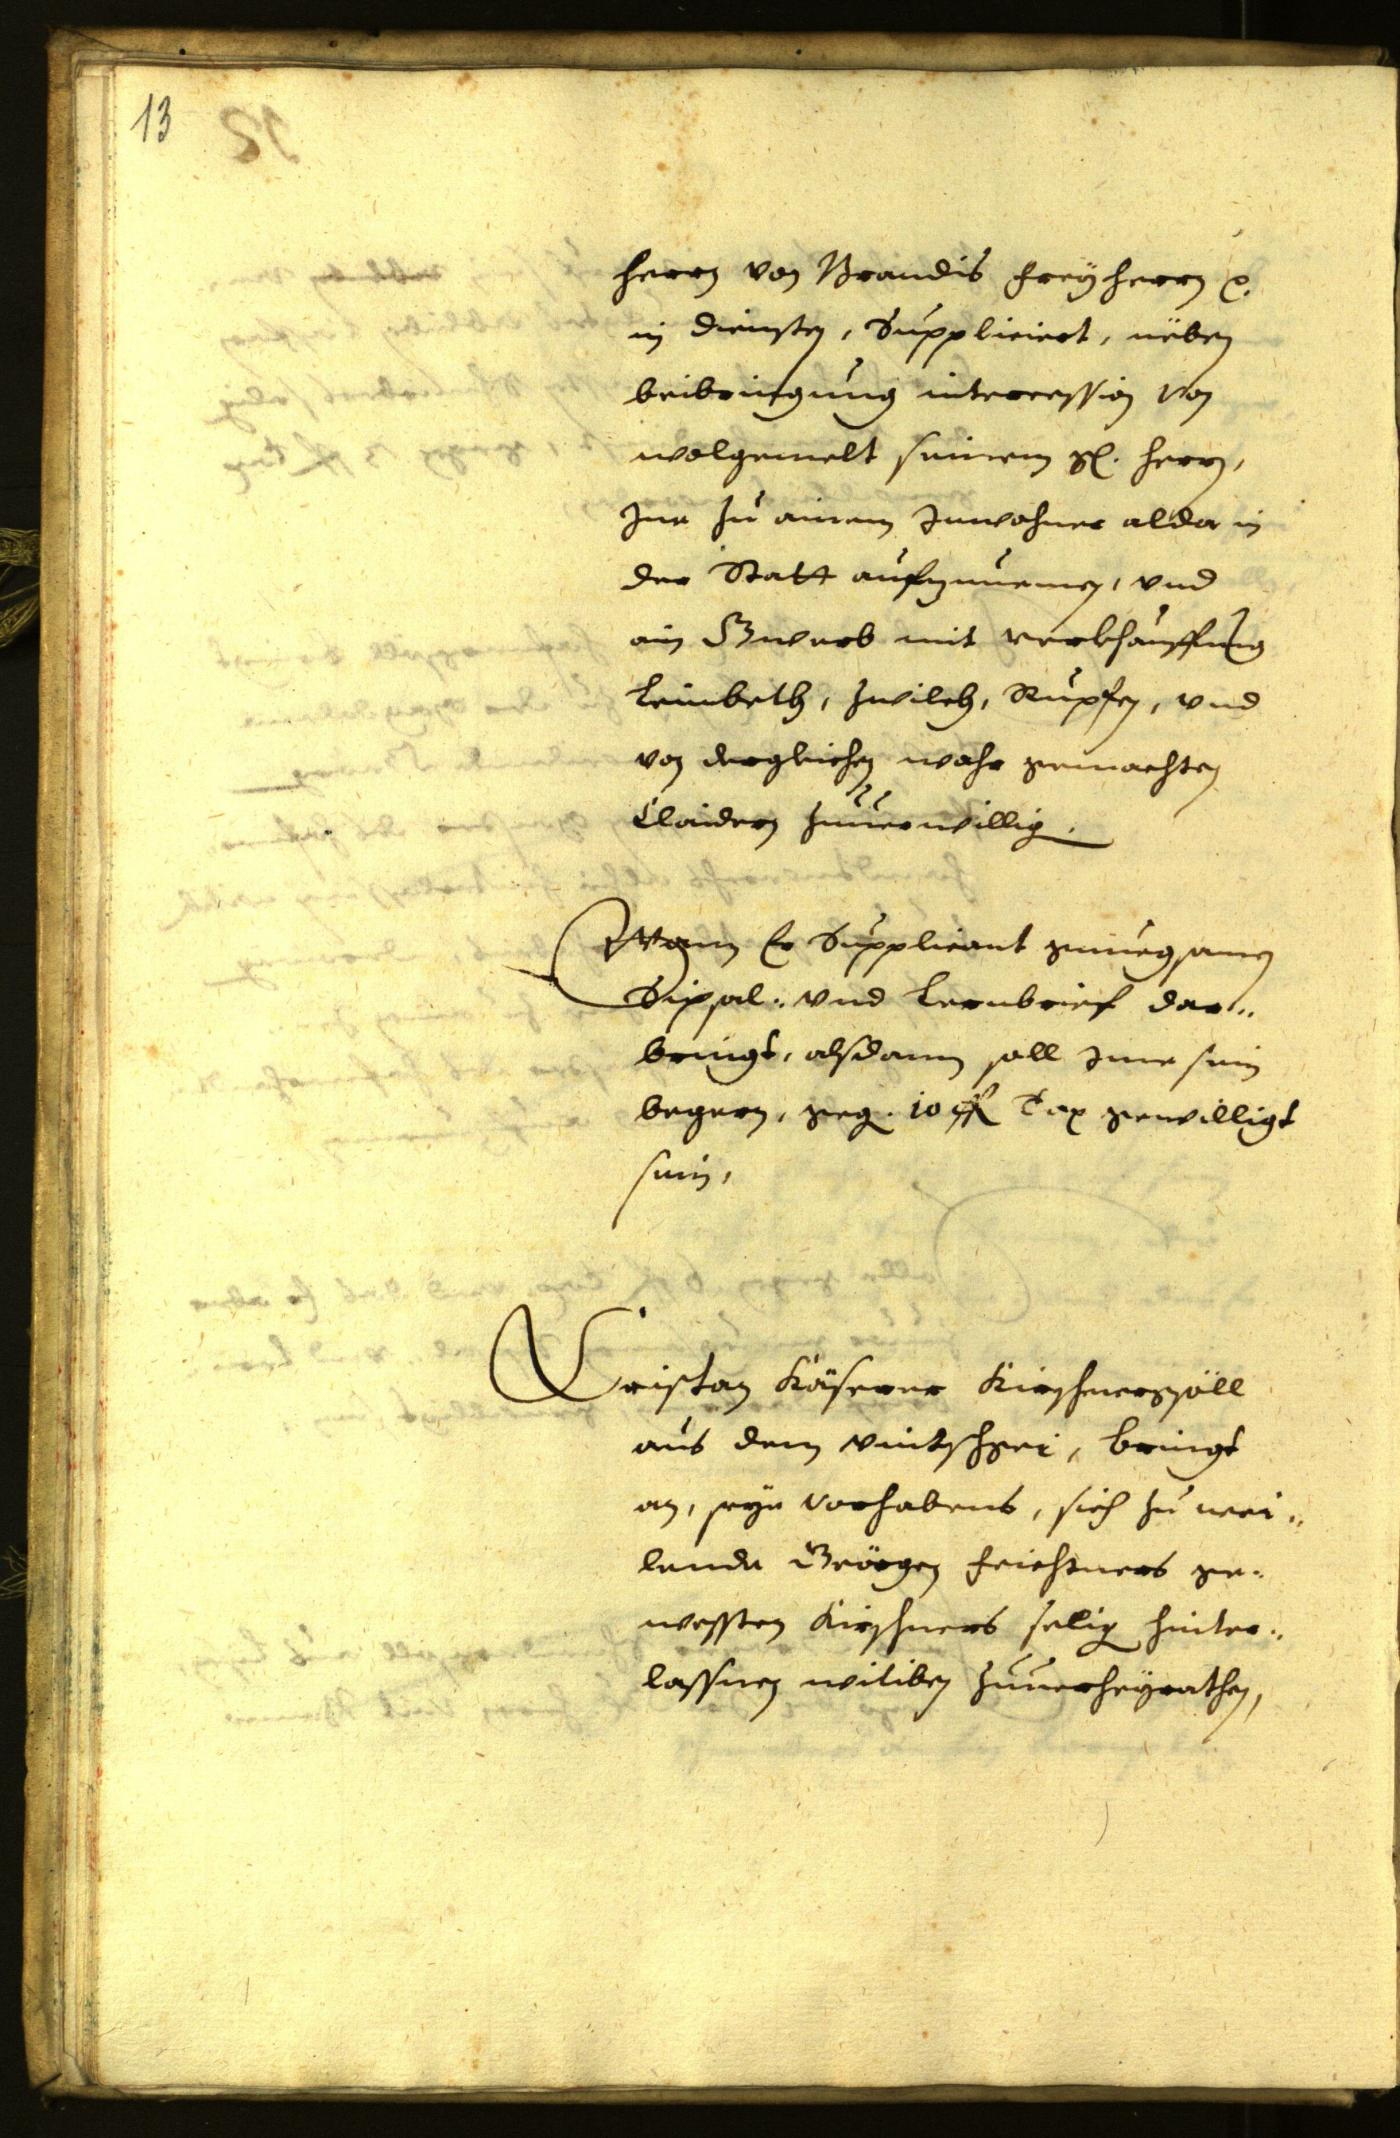 13
herrn von Brandis freyherrn etc.
in diensten, Suppliciert, nëben
beibringung intercession von
wolgemelt seinem gl. herrn,
Ine zu ainem Inwohner alda in
der Statt aufzunemen, vnd
ain Gwerb mit verkhauffung
Leinbeth, Zwilch, Rupfen, vnd
von dergleichen wahr gemachten
Claidern zuuerwilligen.
Wann Er Supplicant genuegsamen
Sipsal: vnd Lernbrief dar„
bringt, alsdann soll Ime sein
begern, geg. 10 fl Tax gewilligt
sein,
Cristan Käserer Kirschnergsöll
aus dem vintschgei, bringt
an, seye vorhabens, sich zu wei„
lende Geörgen feichtners ge„
westen Kirschners selig hinter„
lassnen witiben zuuerheyrathen,